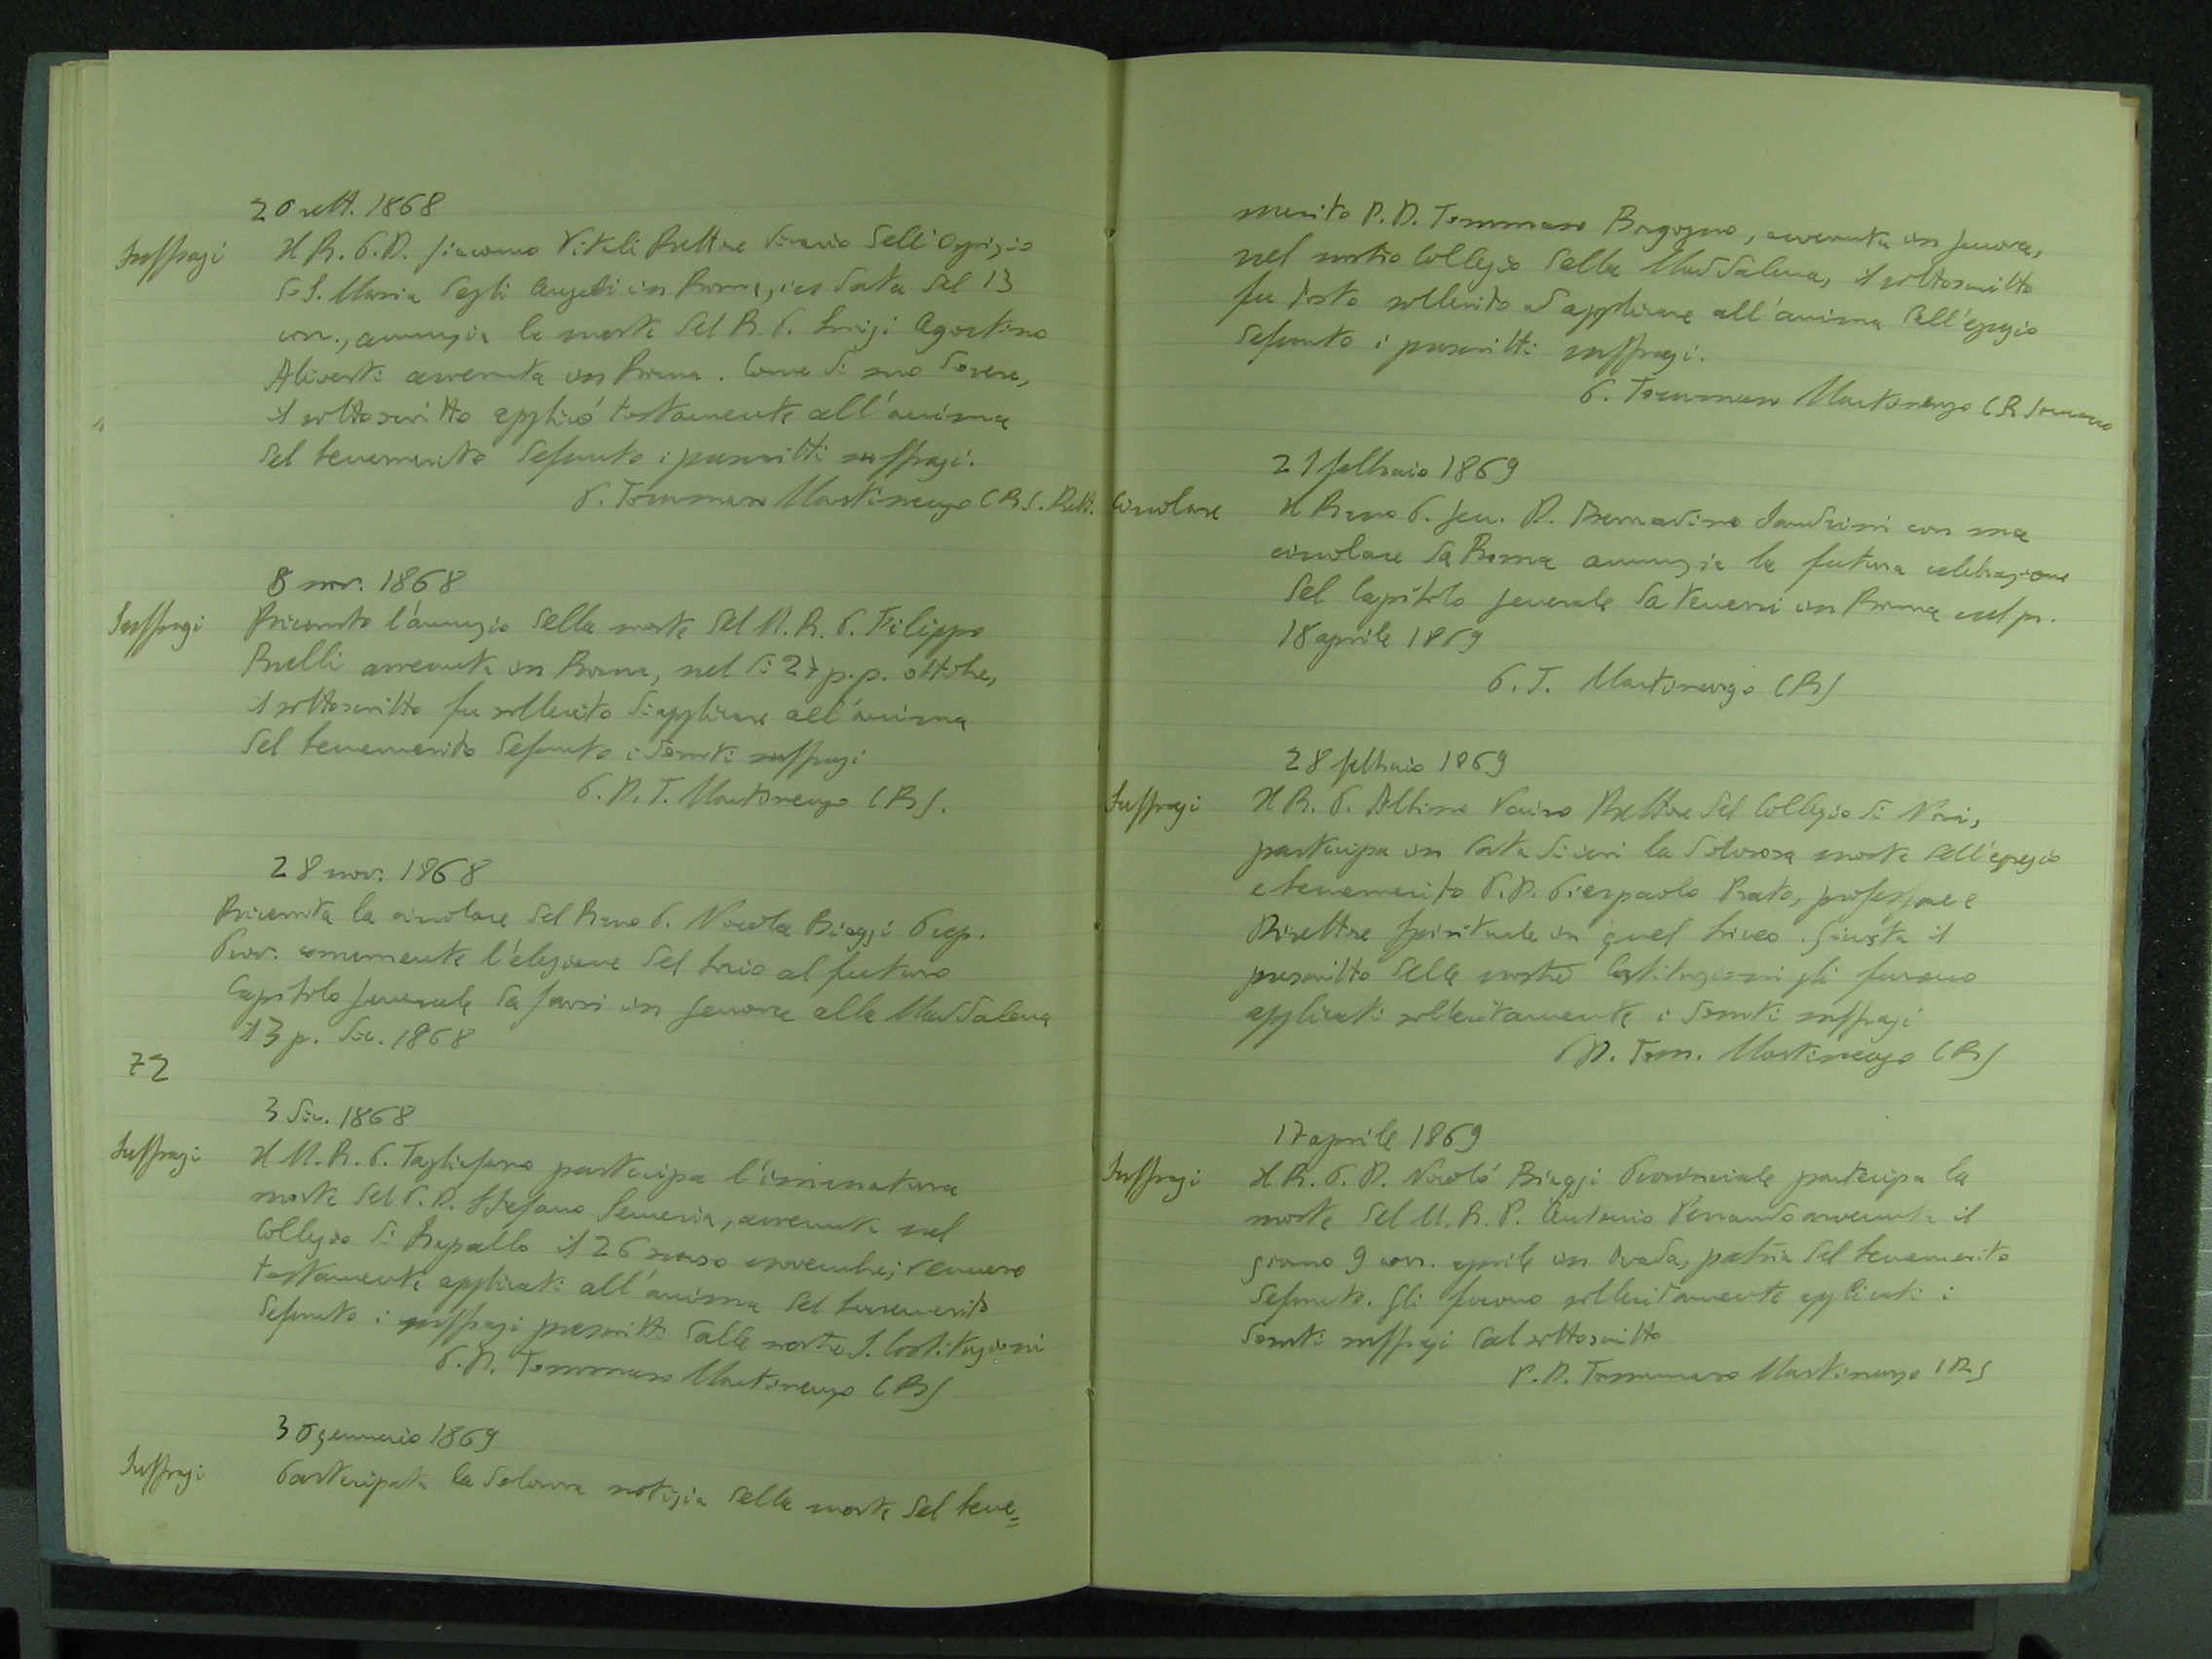 20 sett. 1868
Suffragi
Il R. P. D. Giacomo Vitali Rettore Vicario dell'Ospizio
di S. Maria degli Angeli in Roma, in data del 13
corr., annunzia la morte del R. P. Luigi Agostino
Aliverti avvenuta in Roma. Come di suo dovere,
il sottoscritto applicò tostamente all'anima
del benemerito defunto i prescritti suffragi.
P. Tommaso Martinengo CRS. Rett.
8 nov. 1868
Suffragi
Ricevuto l'annuzio della morte del M. R. P. Filippo
Rulli avvenuta in Roma, nel dì 27 p.p. ottobre,
il sottoscritto fu sollecito di applicare all'anima
del benemerito defunto i dovuti suffragi
P. D. T. Martinengo CRS.
28 nov. 1868
Ricevuta la circolare del Rmo P. Nicola Biaggi Prep.
Prov. concernente l'elezione del Socio al futuro
Capitolo generale da farsi in Genova alla Maddalena
il 3 p. dic. 1868
72
3 dic. 1868
Suffragi
Il M. R. P. Tagliaferro partecipa l'immatura
morte del P. D. Stefano Semeria, avvenuta nel
Collegio di Rapallo il 26 scorso novembre; vennero
tostamente applicati all'anima del benemerito
defunto i suffragi prescritti dalle nostre S. Costituzioni
P. D. Tommaso Martinengo CRS
30 gennaio 1869
Suffragi
Partecipata la dolorosa notizia della morte del bene=
merito P. D. Tommaso Borgogno, avvenuta in Genova,
nel nostro Collegio della Maddalena, il sottoscritto
fu tosto sollecito ad applicare all'anima dell'egregio
defunto i prescritti suffragi.
P. Tommaso Martinengo CR Somasco
21 febbraio 1869
Circolare
Il Rmo P. Gen. D. Bernardino Sandrini con sua
circolare da Roma annunzia la futura celebrazione
del Capitolo generale da tenersi in Roma nel pr.
18 aprile 1869
P. T. Martinengo CRS
28 febbraio 1869
Suffragi
Il R. P. Albino Vairo Rettore del Collegio di Novi,
partecipa in data di ieri la dolorosa morte dell'egregio
e benemerito P. D. Pierpaolo Prato, professore e
Direttore spirituale in quel Liceo. Giusta il
prescritto delle nostre Costituzioni gli furono
applicati sollecitamente i dovuti suffragi
P D. Tom. Martinengo CRS
17 aprile 1869
Suffragi
Il R. P. D. Nicolò Biaggi Provinciale partecipa la
morte del M. R. P. Antonio Ferrando avvenuta il
giorno 9 corr. aprile in Ovada, patria del benemerito
defunto. Gli furono sollecitamente applicati i
dovuti suffragi dal sottoscritto
P. D. Tommaso Martinengo CRS